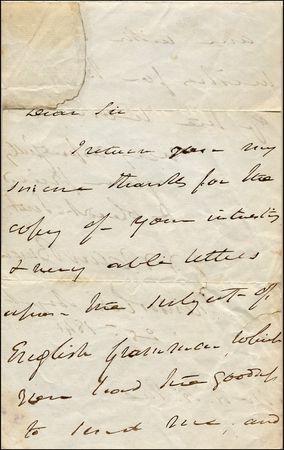 Dear Sir
I return you my
sincere thanks for the
copy of your interestg
& very able letters
upon the subject of
English Grammar, which
you had the goodness
to send me, and